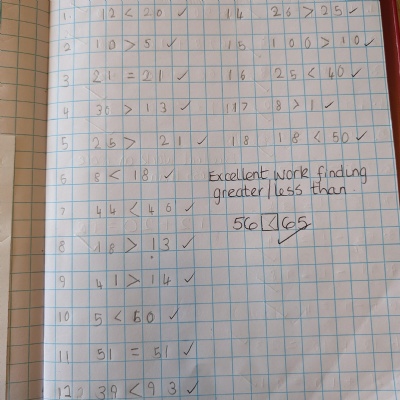 1. 12 < 20 ✓
2 10 > 5 ✓
3 21 = 21 ✓
4 30 > 13 ✓
5 25 > 21 ✓
6 8 < 18 ✓
7 44 < 46 ✓
8 18 > 13 ✓
9 41 > 14 ✓
10 5 < 60 ✓
11 51 = 51 ✓
12 39 < 93 ✓
14 26 > 25 ✓
15 100 > 10 ✓
16 25 < 40 ✓
117 8 > 1 ✓
18 18 < 50 ✓
Excellent work finding
greater/less than.
56 < 65 ✓